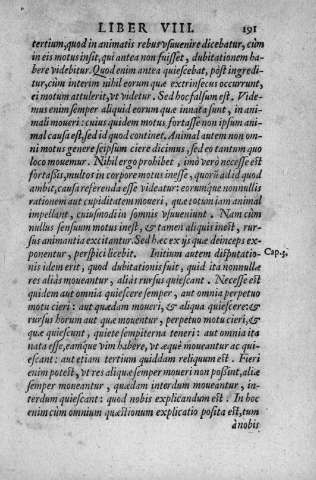 LIBER VIII. 191
tertium, quod in animatis rebus vsuuenire dicebatur, cùm
in eis motus insit, qui antea non fuisset, dubitationem ha-
bere videbitur. Quod enim antea quiescebat, pòst ingredi-
tur, cùm interim nihil eorum quæ extrinsecus occurrunt,
ei motum attulerit, vt videtur. Sed hoc falsum est. Vide-
mus enim semper aliquid eorum quæ innata sunt, in ani-
mali moueri: cuius quidem motus fortasse non ipsum ani-
mal causa est, sed id quod continet. Animal autem non om-
ni motus genere seipsum ciere dicimus, sed eo tantum quo
loco mouemur. Nihil ergo prohibet, imò verò necesse est
fortasse, multos in corpore motus inesse, quorū ad id quod
ambit, causa referenda esse videatur: eorumque nonnullis
rationem aut cupiditatem moueri, quæ totum iam animal
impellant, cuiusmodi in somnis vsuueniunt. Nam cùm
nullus sensuum motus inest, & tamen aliquis inest, rur-
sus animantia excitantur. Sed hæc ex ijs quæ deinceps ex-
ponentur, perspici licebit. Initium autem disputatio-
nis idem erit, quod dubitationis fuit, quid ita nonnullæ
res aliàs moueantur, aliàs rursus quiescant. Necesse est
quidem aut omnia quiescere semper, aut omnia perpetuo
motu cieri: aut quædam moueri, & aliqua quiescere: &
rursus horum aut quæ mouentur, perpetuo motu cieri, &
quæ quiescunt, quiete sempiterna teneri: aut omnia ita
nata esse, eamque vim habere, vt æquè moueantur ac qui-
escant: aut etiam tertium quiddam reliquum est. Fieri
enim potest, vt res aliquæ semper moueri non possint, aliæ
semper moueantur, quædam interdum moueantur, in-
terdum quiescant: quod nobis explicandum est. In hoc
enim cùm omnium quæstionum explicatio posita est, tum
à nobis
Cap. 3.